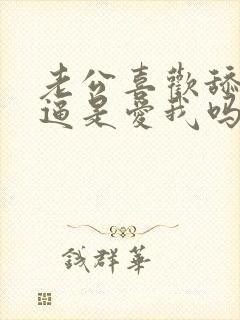 老公喜歡舔
逼是愛我吗
錢群華